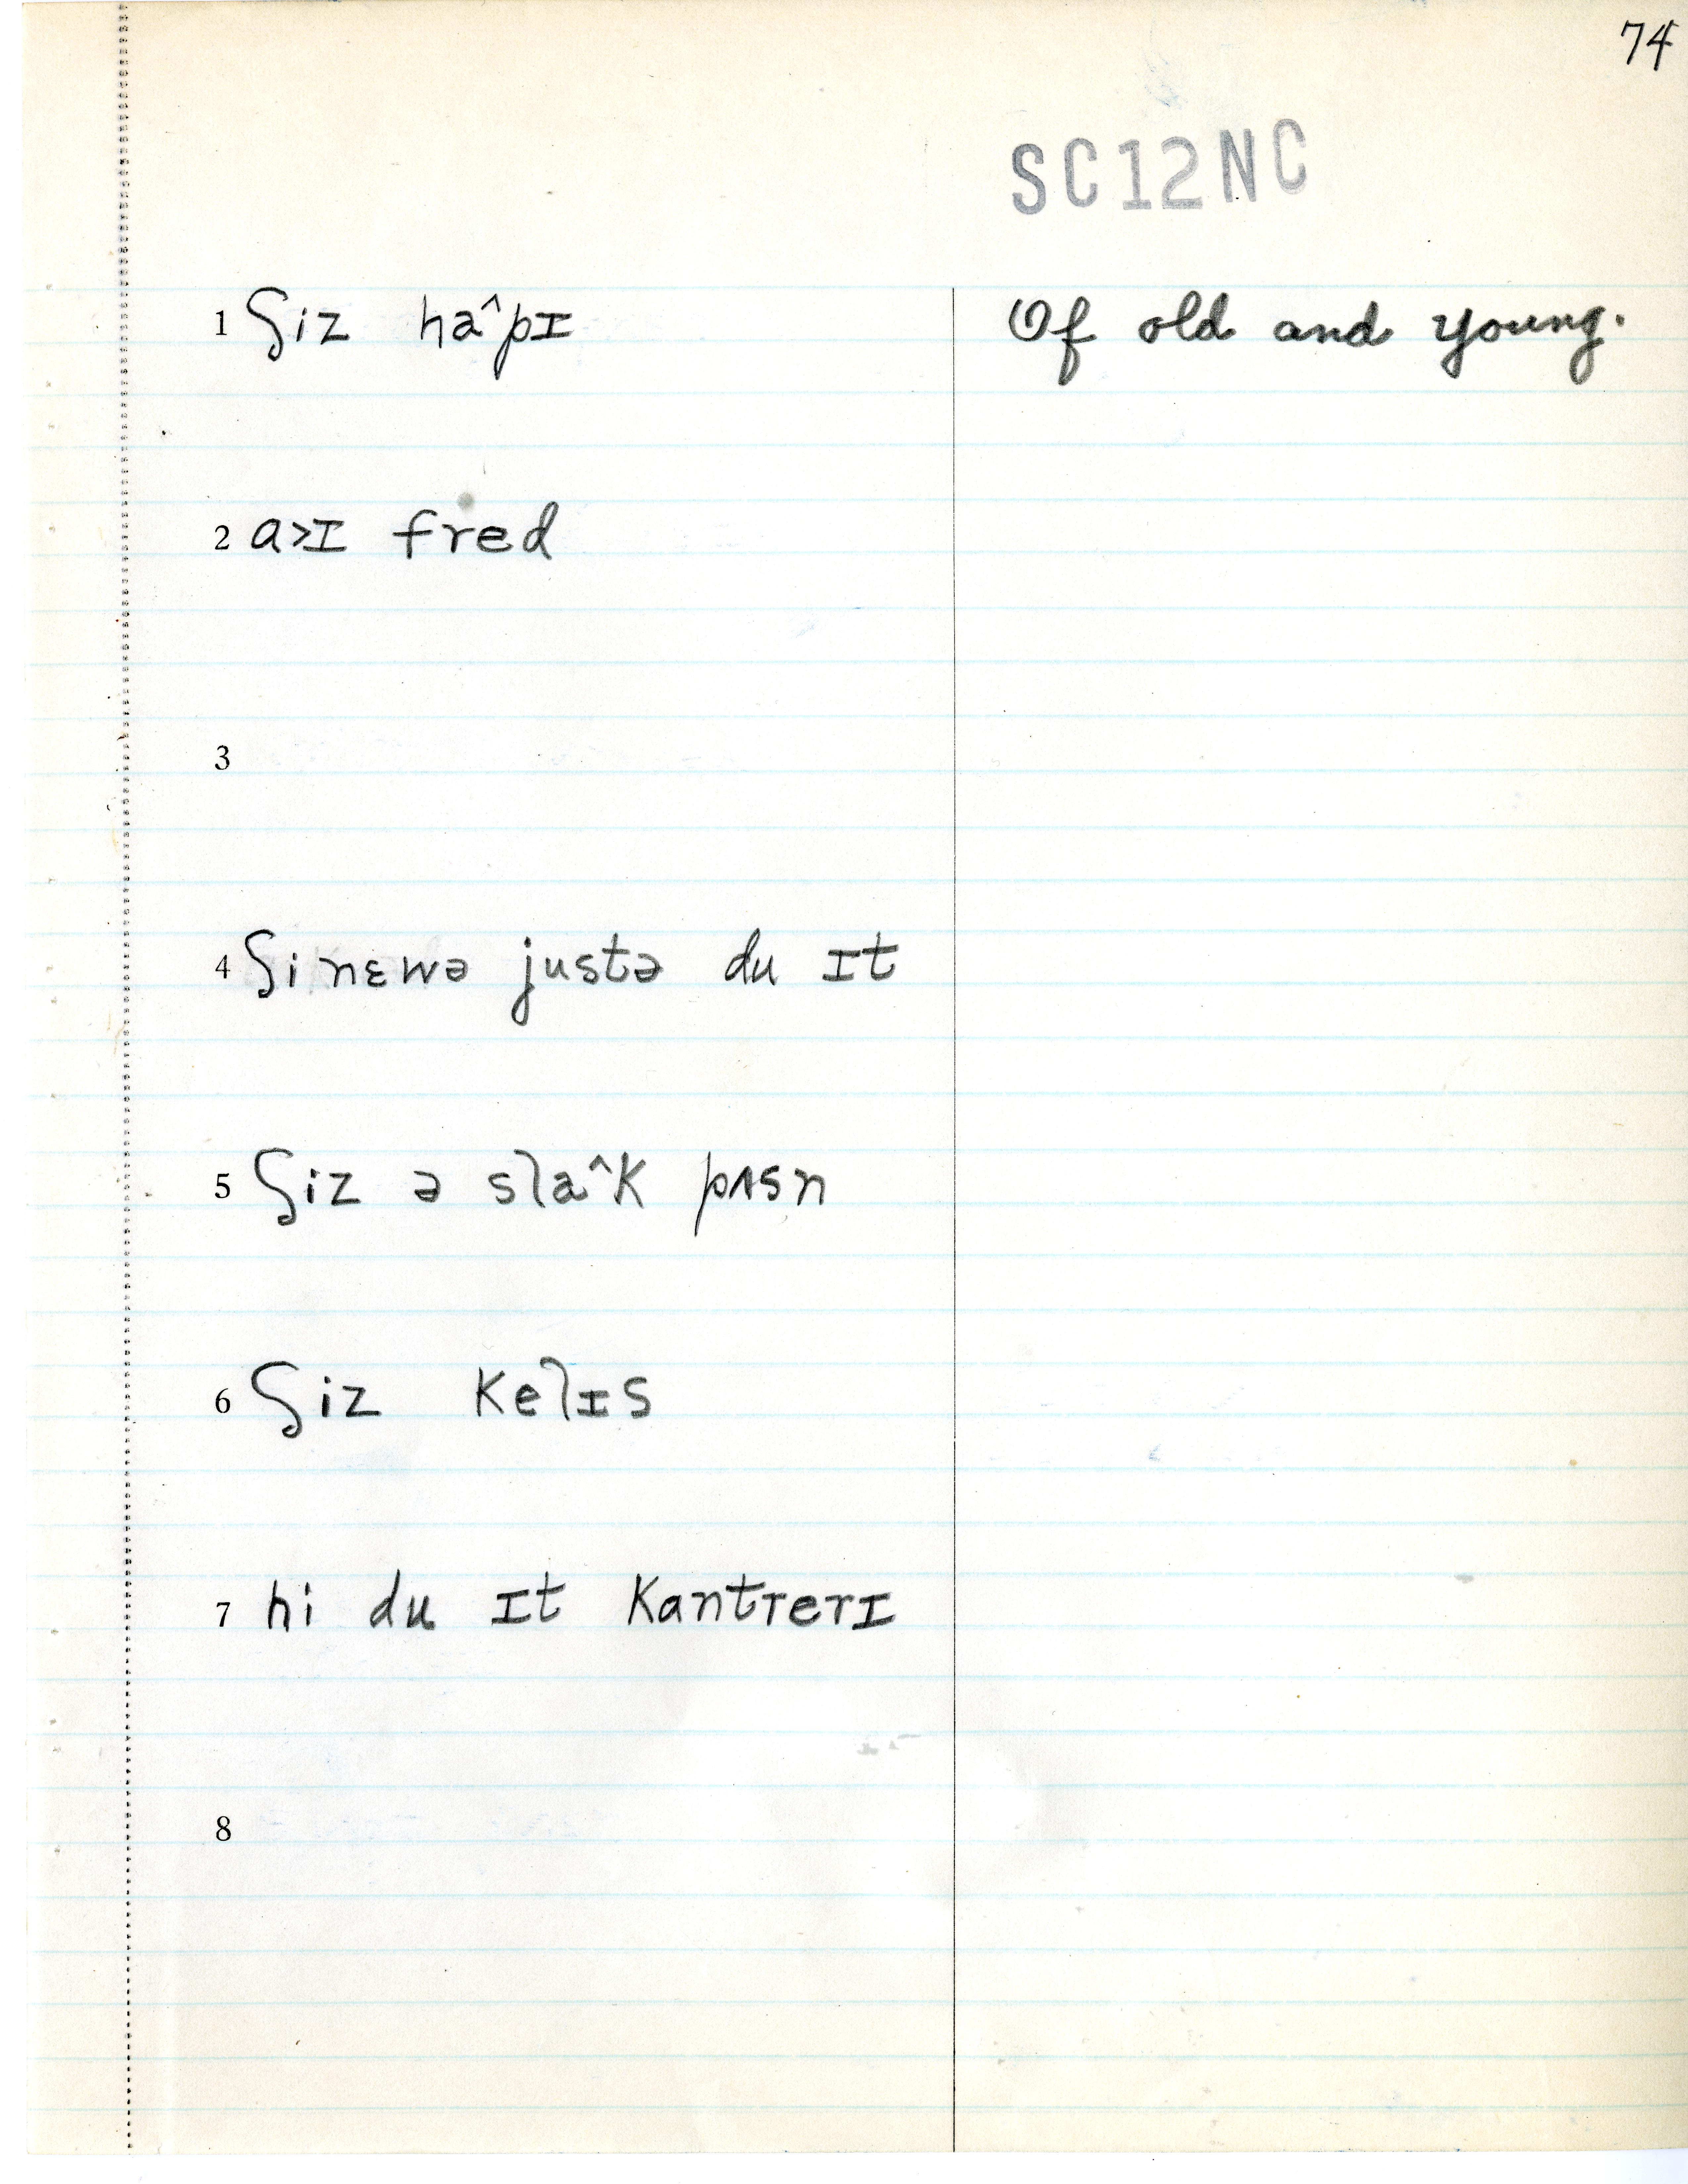 74
SC12NC
1 ʃiz ha^pɪ Of old and young.
2 a>ɪ fred
3
4 ʃi nɛwə justə du ɪt
5 ʃiz ə sla^k pʌsn
6 ʃiz kelɪs
7 hi du ɪt kantrerɪ
8